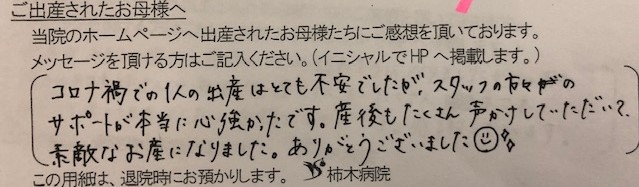 ご出産されたお母様へ
当院のホームページへ出産されたお母様たちにご感想を頂いております。
メッセージを頂ける方はご記入ください。(イニシャルでHPへ掲載します。)
コロナ禍での1人の出産はとても不安でしたが、スタッフの方々がの
サポートが本当に心強かったです。産後もたくさん声かけしていただいて、
素敵なお産になりました。ありがとうございました
この用紙は、退院時にお預かりします。 柿木病院